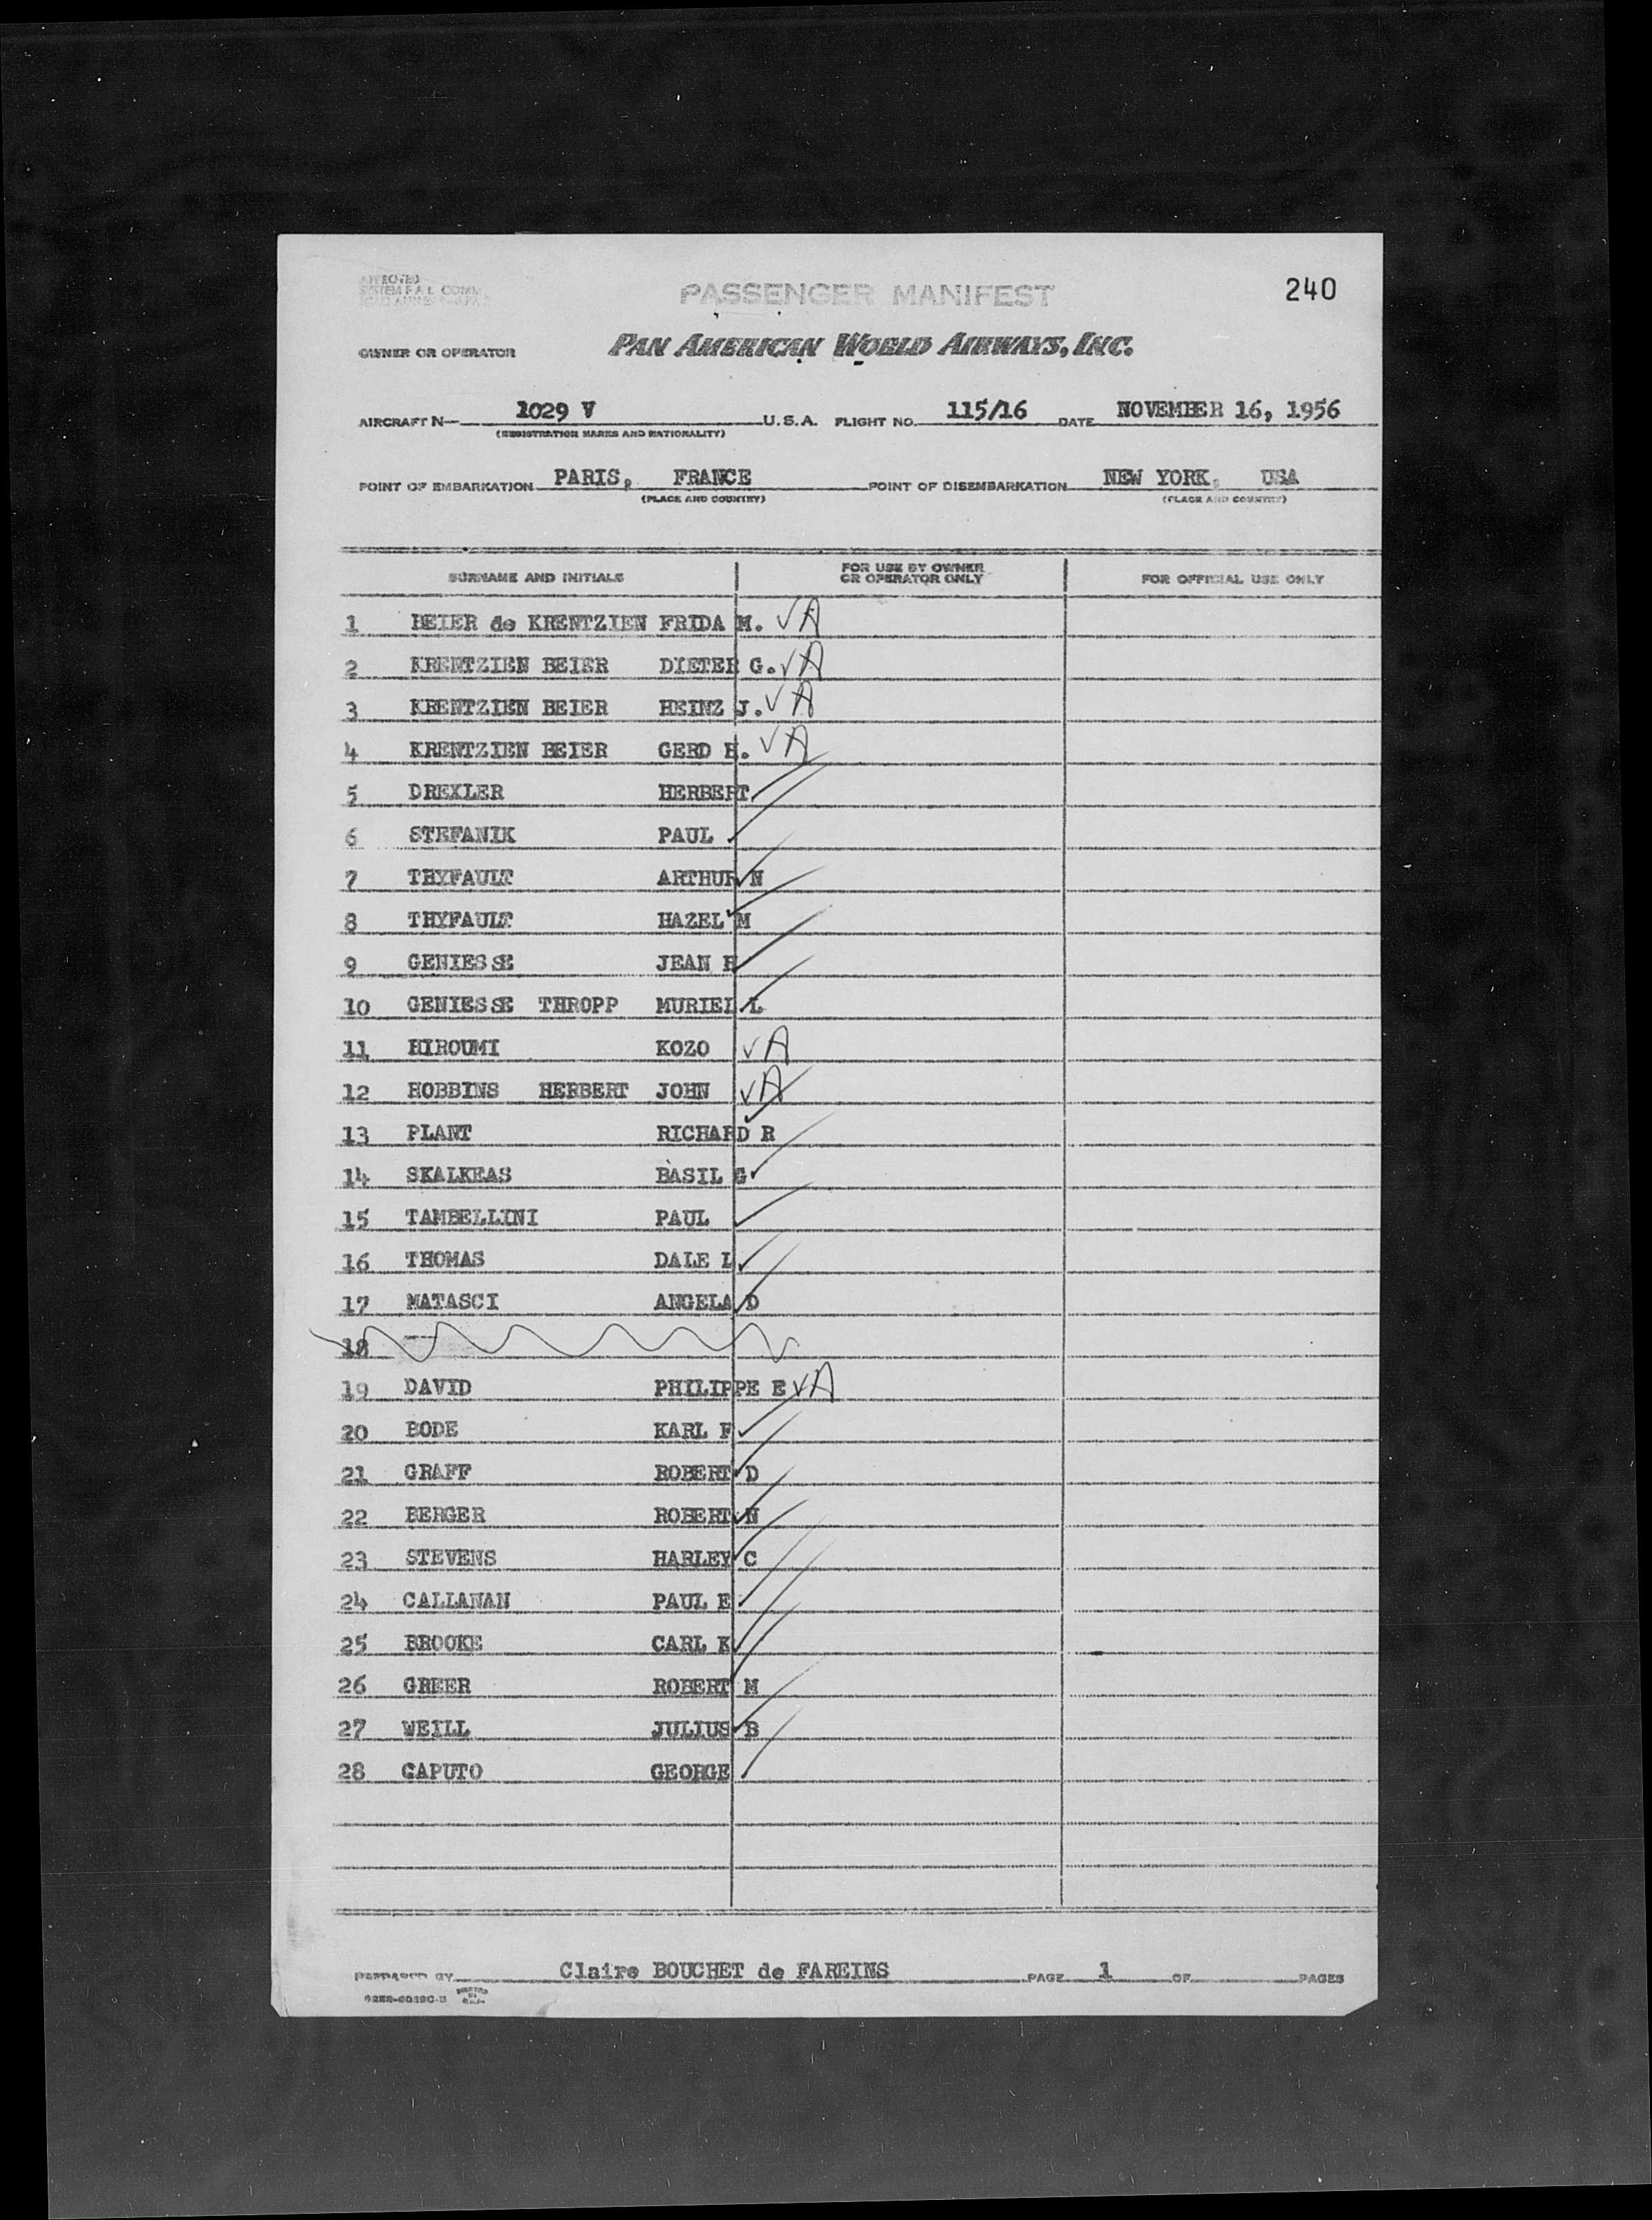 APPROVED
SYSTEM F.A.L. COMM.
PASSENGER MANIFEST 240
OWNER OR OPERATOR PAN AMERICAN WORLD AIRWAYS, INC.
AIRCRAFT N— 1029 V U.S.A. FLIGHT NO. 115/16 DATE NOVEMBER 16, 1956
(REGISTRATION MARKS AND NATIONALITY)
POINT OF EMBARKATION PARIS, FRANCE POINT OF DISEMBARKATION NEW YORK, USA
(PLACE AND COUNTRY) (PLACE AND COUNTRY)
SURNAME AND INITIALS FOR USE BY OWNER OR OPERATOR ONLY FOR OFFICIAL USE ONLY
1 BEIER de KRENTZIEN FRIDA M. √A
2 KRENTZIEN BEIER DIETER G. √A
3 KRENTZIEN BEIER HEINZ J. √A
4 KRENTZIEN BEIER GERD H. √A
5 DREXLER HERBERT
6 STEFANIK PAUL
7 THYFAULT ARTHUR N
8 THYFAULT HAZEL M
9 GENIESSE JEAN H
10 GENIESSE THROPP MURIEL L
11 HIROUMI KOZO √A
12 HOBBINS HERBERT JOHN √A
13 PLANT RICHARD R
14 SKALKEAS BASIL G
15 TAMBELLINI PAUL
16 THOMAS DALE L
17 MATASCI ANGELA D
18
19 DAVID PHILIPPE E √A
20 BODE KARL F
21 GRAFF ROBERT D
22 BERGER ROBERT N
23 STEVENS HARLEY C
24 CALLANAN PAUL E
25 BROOKE CARL K
26 GREER ROBERT M
27 WEILL JULIUS B
28 CAPUTO GEORGE
PREPARED BY Claire BOUCHET de FAREINS PAGE 1 OF PAGES